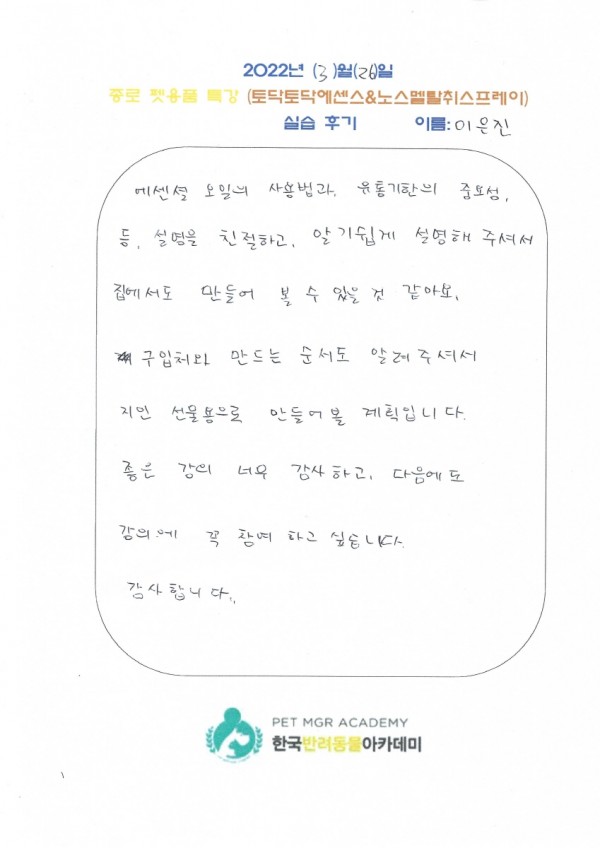 2022년 (3)월(26)일
종로 펫용품 특강 (토닥토닥에센스&노스멜탈취스프레이)
실습 후기 이름: 이은진
에센셜 오일의 사용법과, 유통기한의 중요성,
등, 설명을 친절하고, 알기쉽게 설명해 주셔서
집에서도 만들어 볼 수 있을 것 같아요.
구입처와 만드는 순서도 알려주셔서
지인 선물용으로 만들어볼 계획입니다.
좋은 강의 너무 감사하고, 다음에도
강의에 꼭 참여 하고 싶습니다.
감사합니다..
PET MGR ACADEMY
한국반려동물아카데미